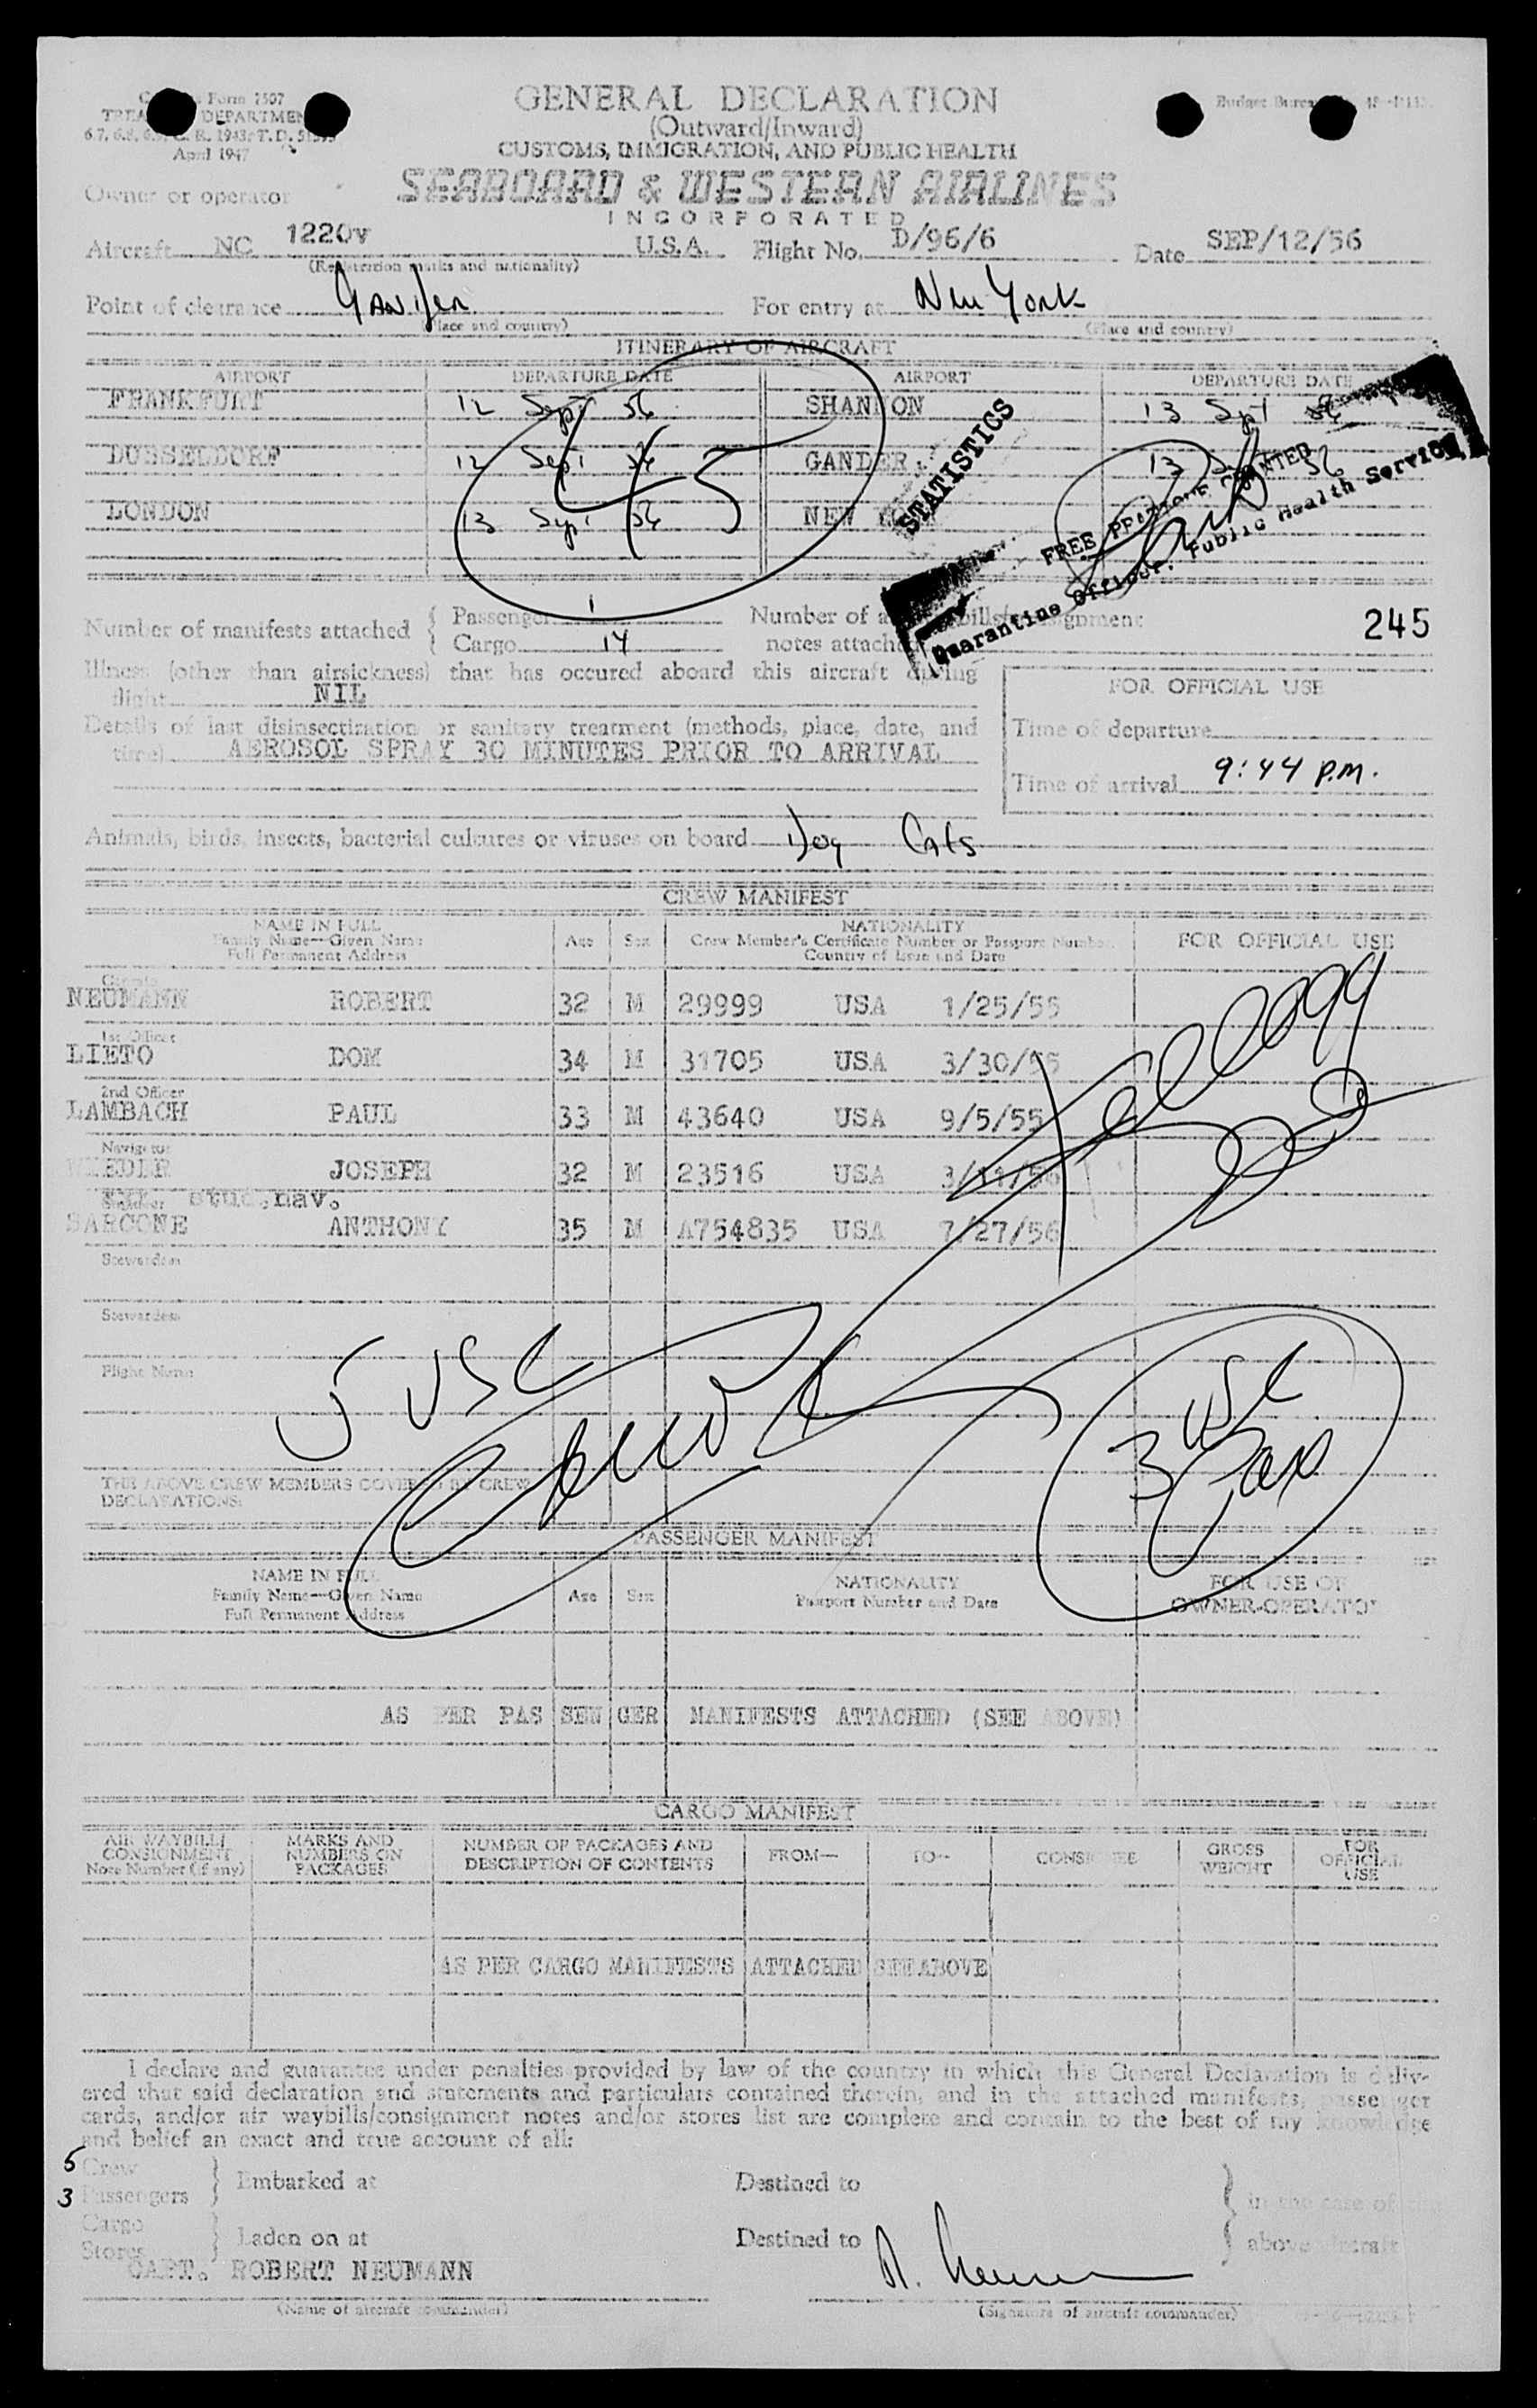 Form 7507
April 1947
GENERAL DECLARATION
(Outward/Inward)
CUSTOMS, IMMIGRATION, AND PUBLIC HEALTH
Owner or operator SEABOARD & WESTERN AIRLINES
INCORPORATED
Aircraft NC 1220V U.S.A. Flight No. D/96/6 Date SEP/12/56
(Registration marks and nationality)
Point of clearance Gander For entry at New York
(Place and country) (Place and country)
ITINERARY OF AIRCRAFT
AIRPORT DEPARTURE DATE AIRPORT DEPARTURE DATE
FRANKFURT 12 Sept 56 SHANNON 13 Sept 56
DUSSELDORF 12 Sept 56 GANDER 13 56
LONDON 13 Sept 56 NEW
45
STATISTICS
FREE PRATIQUE GRANTED
Quarantine Officer, Public Health Service
Number of manifests attached { Passenger 1
Cargo 14
Number of
notes attached
245
Illness (other than airsickness) that has occured aboard this aircraft during
flight NIL
Details of last disinsectization or sanitary treatment (methods, place, date, and
time) AEROSOL SPRAY 30 MINUTES PRIOR TO ARRIVAL
FOR OFFICIAL USE
Time of departure
Time of arrival 9:44 P.M.
Animals, birds, insects, bacterial cultures or viruses on board Dog Cats
CREW MANIFEST
NAME IN FULL
Family Name—Given Name
Full Permanent Address
Age Sex
NATIONALITY
Crew Member's Certificate Number or Passport Number
Country of Issue and Date
FOR OFFICIAL USE
NEUMANN ROBERT 32 M 29999 USA 1/25/55
1st Officer
LIETO DOM 34 M 31705 USA 3/30/55
2nd Officer
LAMBACH PAUL 33 M 43640 USA 9/5/55
Navigator
JOSEPH 32 M 23516 USA 3/11/56
stud.nav.
SARCONE ANTHONY 35 M A754835 USA 7/27/56
Stewardess
Stewardess
Flight Nurse
Kellogg
5 USC
3 USC
Pax
THE ABOVE CREW MEMBERS COVERED BY CREW
DECLARATIONS:
PASSENGER MANIFEST
NAME IN FULL
Family Name—Given Name
Full Permanent Address
Age Sex
NATIONALITY
Passport Number and Date
FOR USE OF
OWNER-OPERATOR
AS PER PAS SEN GER MANIFESTS ATTACHED (SEE ABOVE)
CARGO MANIFEST
AIR WAYBILL/
CONSIGNMENT
Note Number (if any)
MARKS AND
NUMBERS ON
PACKAGES
NUMBER OF PACKAGES AND
DESCRIPTION OF CONTENTS
FROM— TO— CONSIGNEE
GROSS
WEIGHT
FOR
OFFICIAL
USE
AS PER CARGO MANIFESTS ATTACHED SEE ABOVE
I declare and guarantee under penalties provided by law of the country in which this General Declaration is deliv-
ered that said declaration and statements and particulars contained therein, and in the attached manifests, passenger
cards, and/or air waybills/consignment notes and/or stores list are complete and contain to the best of my knowledge
and belief an exact and true account of all:
5 Crew
3 Passengers } Embarked at Destined to } in the case of the
Cargo
Stores } Laden on at Destined to } above aircraft
CAPT. ROBERT NEUMANN
(Name of aircraft commander) (Signature of aircraft commander)